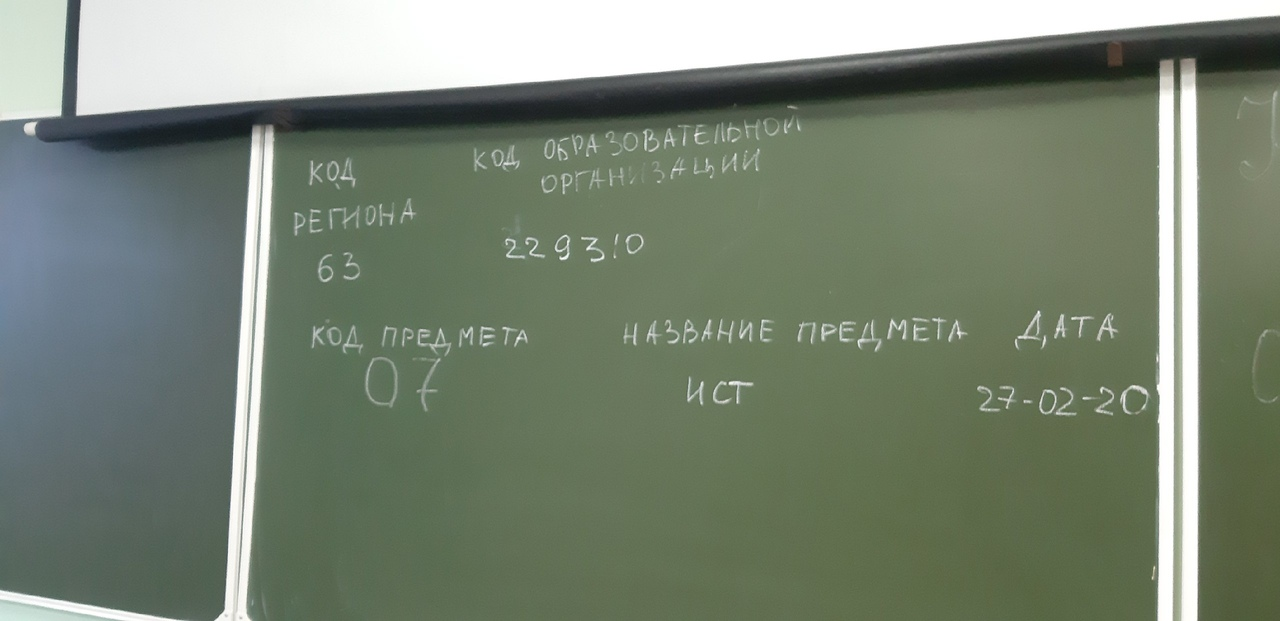 КОД
РЕГИОНА
63
КОД ОБРАЗОВАТЕЛЬНОЙ
ОРГАНИЗАЦИИ
229310
КОД ПРЕДМЕТА
07
НАЗВАНИЕ ПРЕДМЕТА
ИСТ
ДАТА
27-02-20